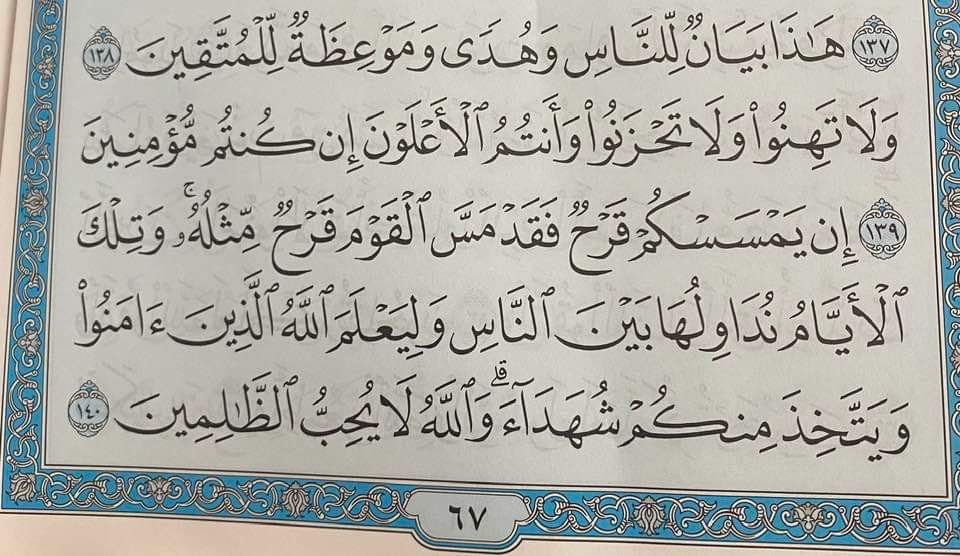 ١٣٧ هَٰذَا بَيَانٌ لِّلنَّاسِ وَهُدًى وَمَوْعِظَةٌ لِّلْمُتَّقِينَ ١٣٨
وَلَا تَهِنُوا۟ وَلَا تَحْزَنُوا۟ وَأَنتُمُ ٱلْأَعْلَوْنَ إِن كُنتُم مُّؤْمِنِينَ
١٣٩ إِن يَمْسَسْكُمْ قَرْحٌ فَقَدْ مَسَّ ٱلْقَوْمَ قَرْحٌ مِّثْلُهُۥ ۚ وَتِلْكَ
ٱلْأَيَّامُ نُدَاوِلُهَا بَيْنَ ٱلنَّاسِ وَلِيَعْلَمَ ٱللَّهُ ٱلَّذِينَ ءَامَنُوا۟
وَيَتَّخِذَ مِنكُمْ شُهَدَآءَ ۗ وَٱللَّهُ لَا يُحِبُّ ٱلظَّٰلِمِينَ ١٤٠
٦٧